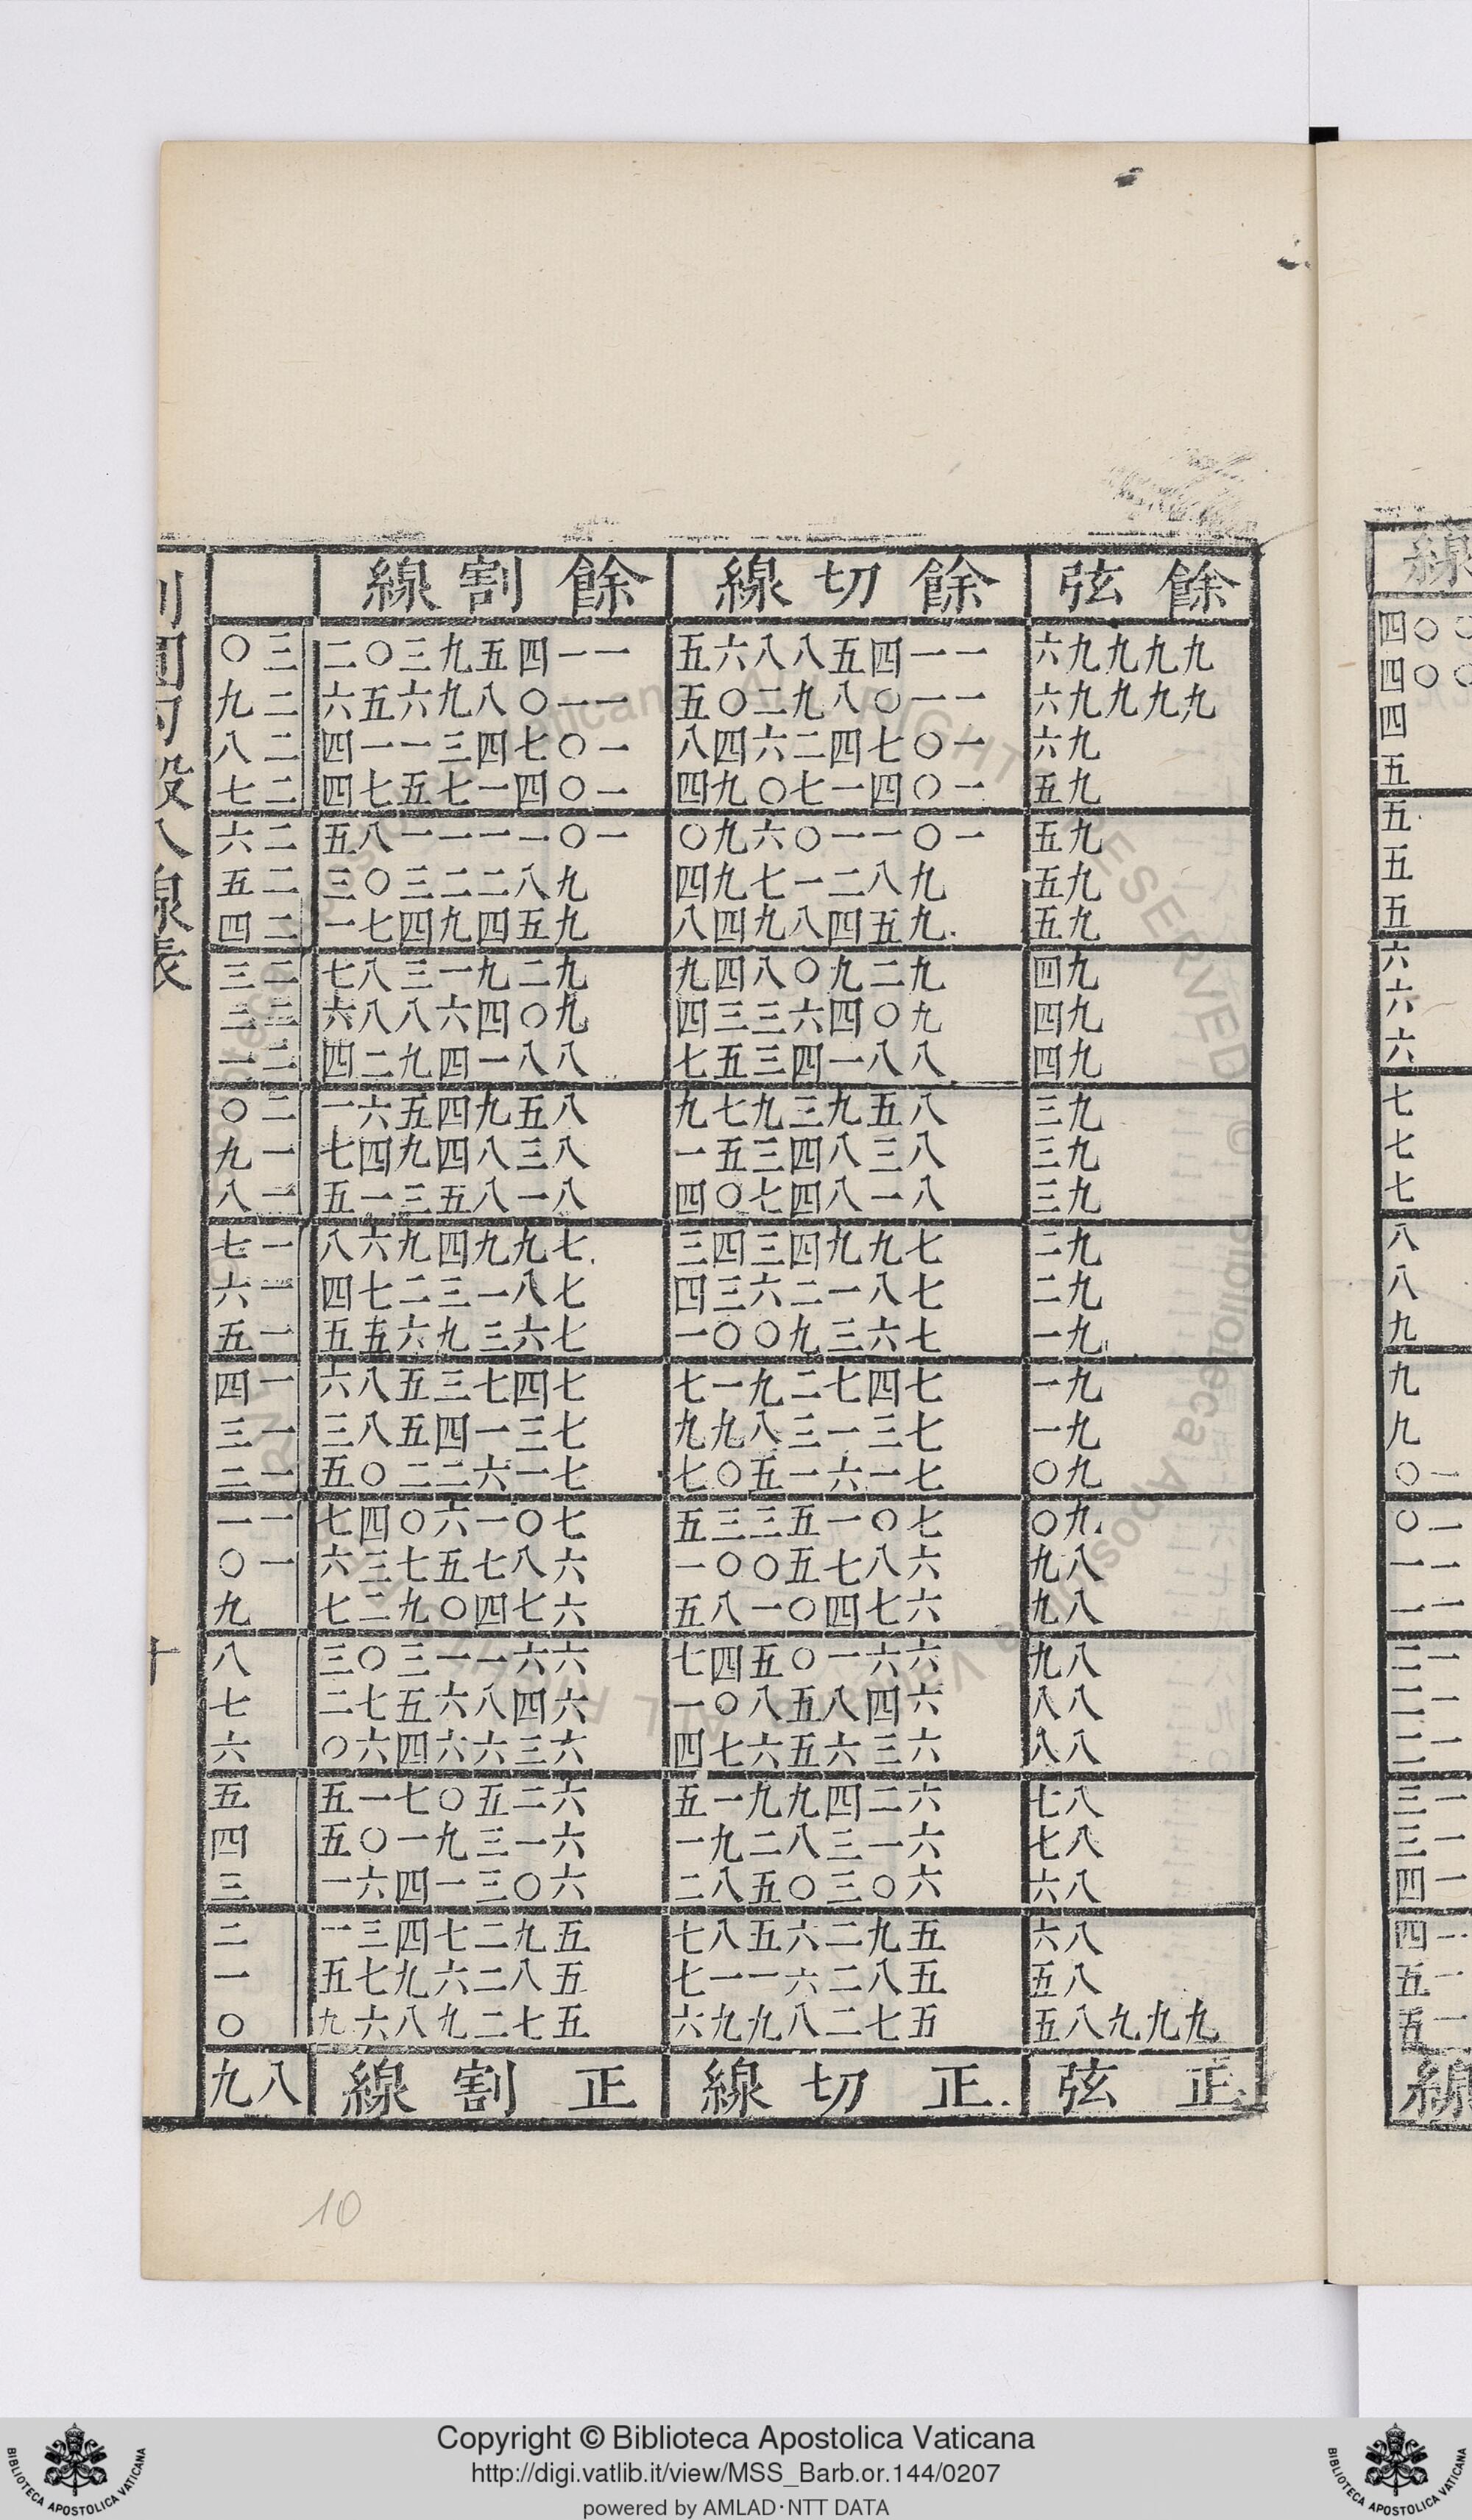 線
〇〇四
〇〇四
四
五
五
五
五
六
六
六
七
七
七
八
八
九
九
九
一〇
一〇
一一
一一
一二
一二
一二
一三
一三
一四
一四
一五
一五
線
餘弦 餘切線 餘割線
九九九九六 一一四五八八六五 一一四五九三〇二 三〇
九九九九六 一一〇八九二〇五 一一〇八九六五六 二九
九六 一〇七四二六四八 一〇七四三一一四 二八
九五 一〇四一七〇九四 一〇四一七五七四 二七
九五 一〇一一〇六九〇 一〇一一一一八五 二六
九五 九八二一七九四 九八二二三〇三 二五
九五 九五四八九四八 九五四九四七一 二四
九四 九二九〇八四九 九二九一三八七 二三
九四 九〇四六三三四 九〇四六八八六 二二
九四 八八一四三五七 八八一四九二四 二一
九三 八五九三九七九 八五九四五六一 二〇
九三 八三八四三五一 八三八四九四七 一九
九三 八一八四七〇四 八一八五三一五 一八
九二 七九九四三四三 七九九四九六八 一七
九二 七八一二六三四 七八一三二七四 一六
九一 七六三九〇〇一 七六三九六五五 一五
九一 七四七二九一七 七四七三五八六 一四
九一 七三一三八九九 七三一四五八三 一三
九〇 七一六一五〇七 七一六二二〇五 一二
九〇 七〇一五三三五 七〇一六〇四七 一一
八九 六八七五〇〇一 六八七五七三六 一〇
八九 六七四〇一八五 六七四〇九二七 九
八九 六六一〇五四七 六六一一三〇三 八
八八 六四八五八〇一 六四八六五七二 七
八八 六三六五六七四 六三六六四六〇 六
八七 六二四九九一五 六二五〇七一五 五
八七 六一三八二九一 六一三九一〇五 四
八六 六〇三〇五八二 六〇三一四六一 三
八六 五九二六五八七 五九二七四三一 二
八五 五八二六一一七 五八二六九七五 一
九九九八五 五七二八九九六 五七二九八六九 〇
正弦 正切線 正割線 八九
割圓勾股八線表
十
10
Copyright © Biblioteca Apostolica Vaticana
http://digi.vatlib.it/view/MSS_Barb.or.144/0207
powered by AMLAD·NTT DATA
BIBLIOTECA APOSTOLICA VATICANA
BIBLIOTECA APOSTOLICA VATICANA